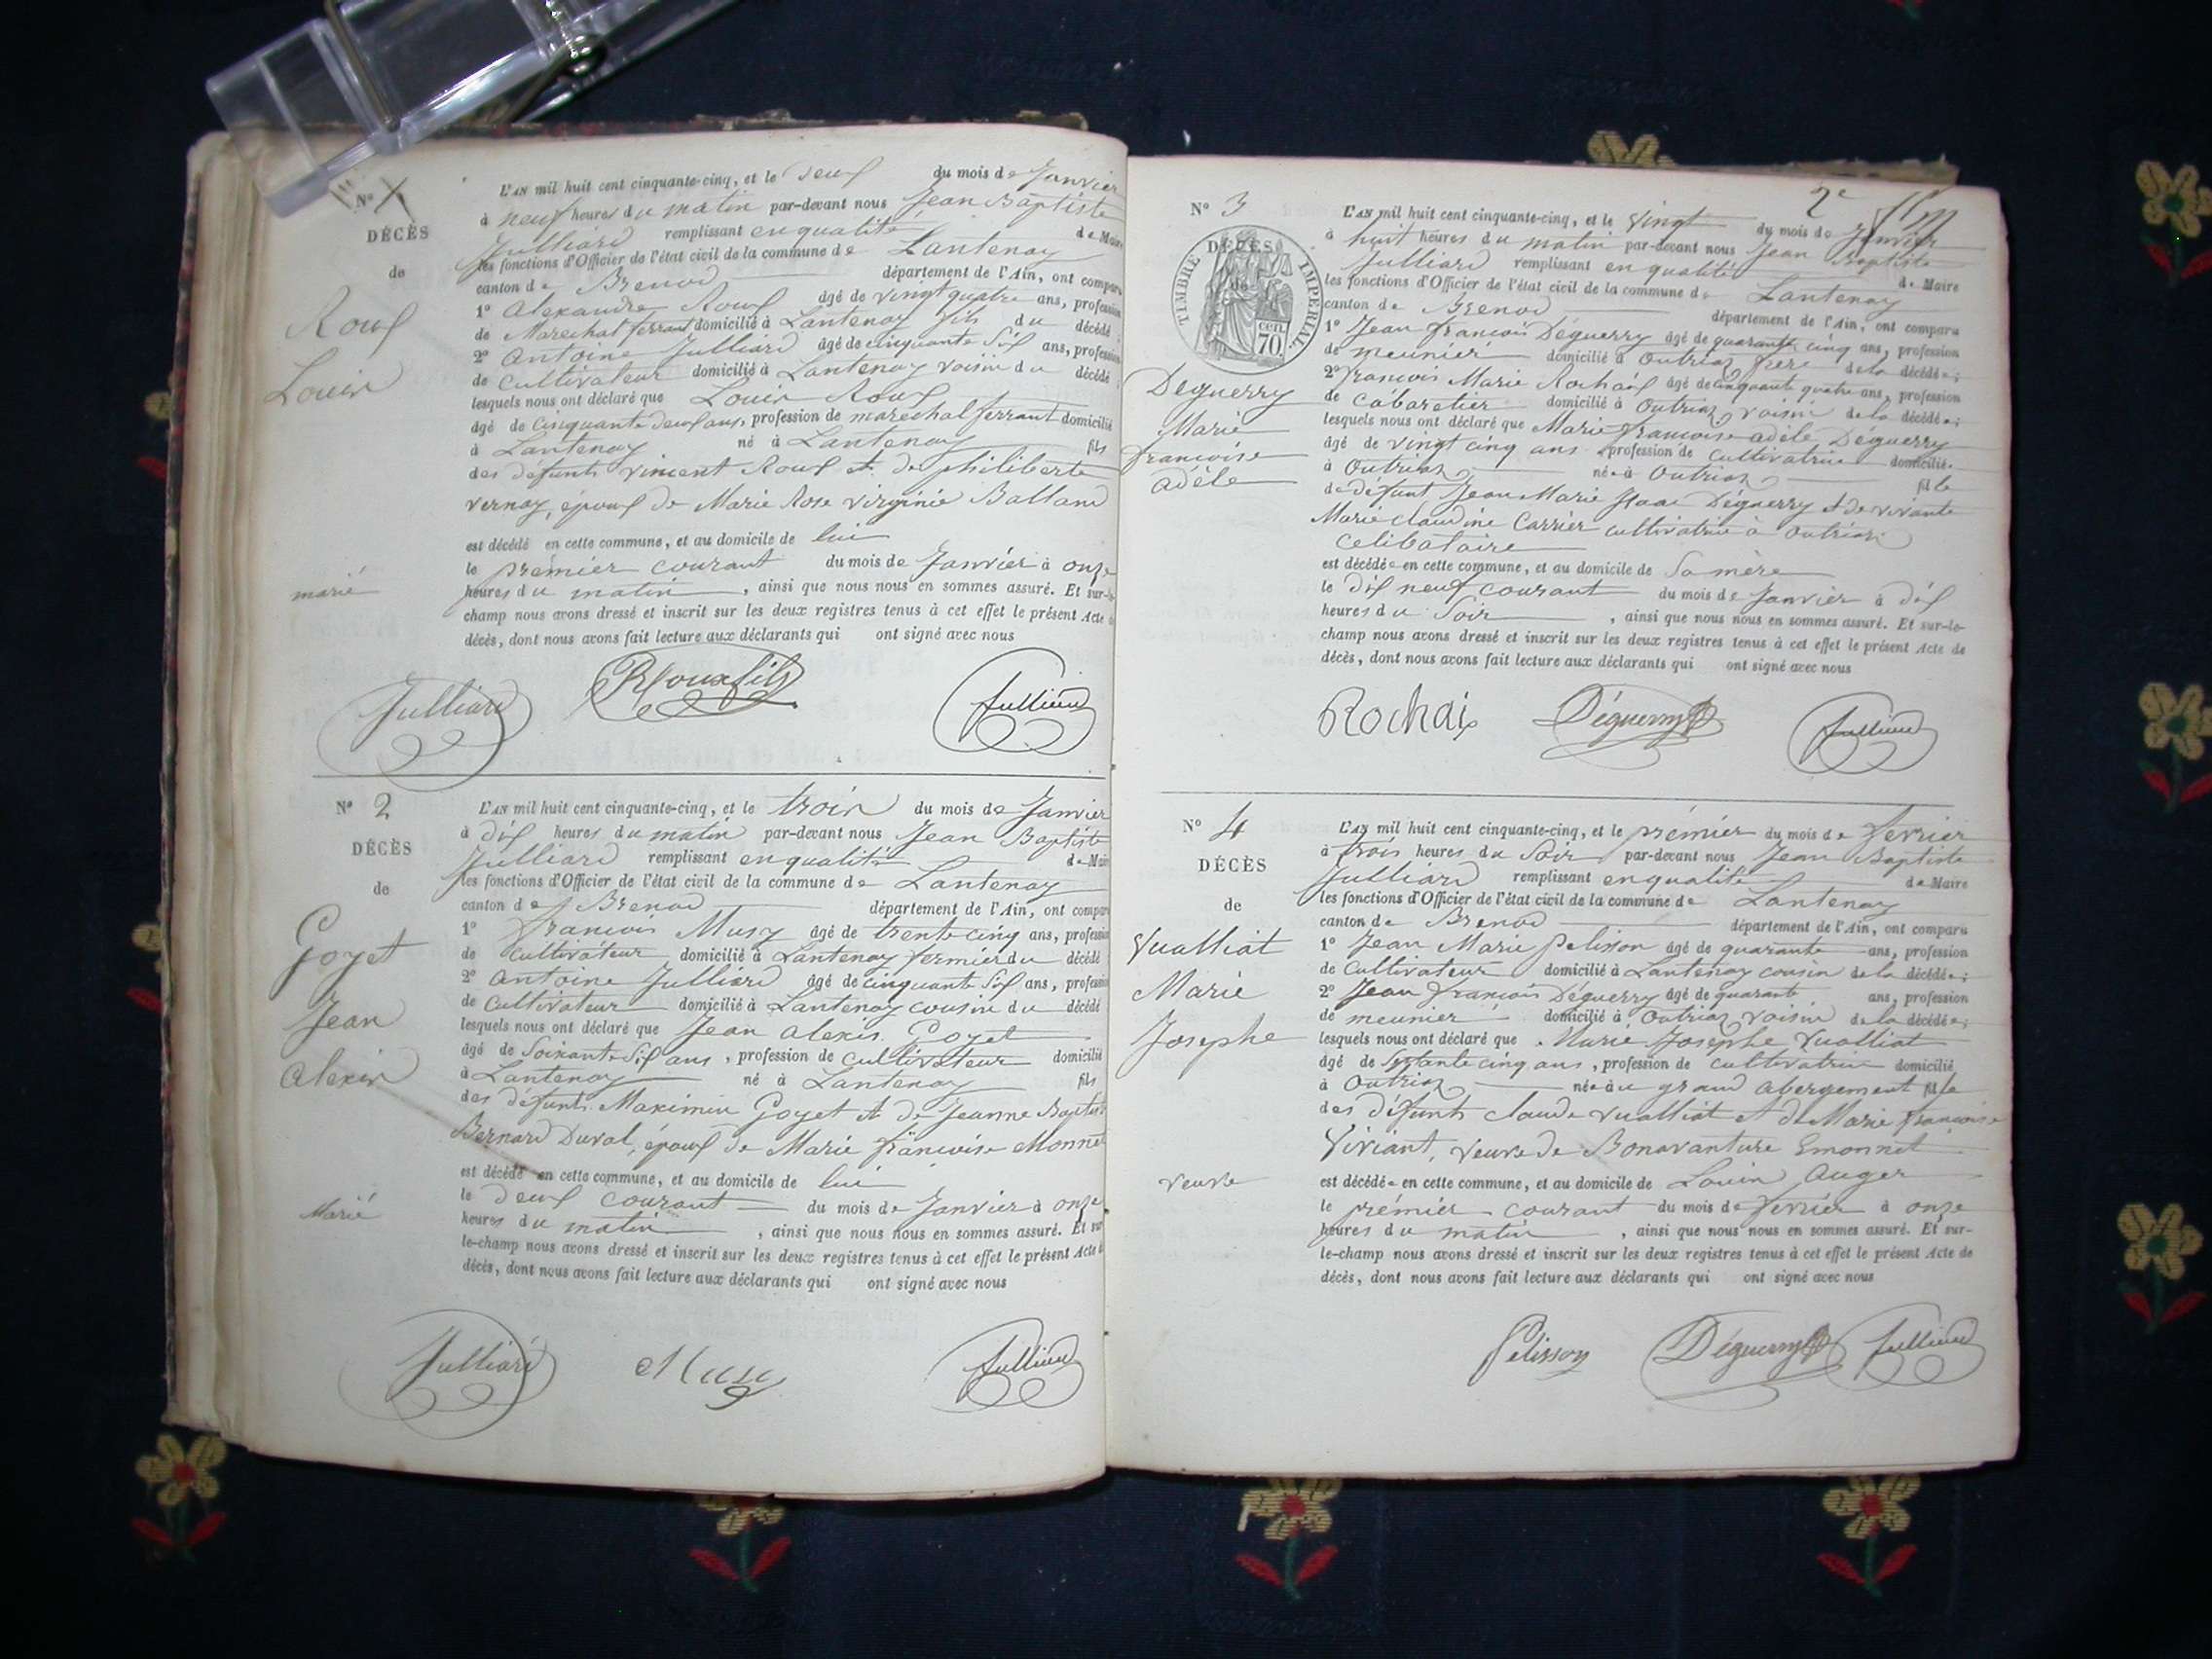 N° 1
DÉCÈS
de
Roux
Louis
marié
L'AN mil huit cent cinquante-cinq, et le deux du mois de Janvier
à neuf heures du matin par-devant nous Jean Baptiste
Julliard remplissant en qualité de Maire
les fonctions d'Officier de l'état civil de la commune de Lantenay
canton de Brenod département de l'Ain, ont comparu
1° Alexandre Roux âgé de vingt quatre ans, profession
de Marechal ferrant domicilié à Lantenay fils du décédé
2° Antoine Julliard âgé de cinquante six ans, profession
de Cultivateur domicilié à Lantenay voisin du décédé
lesquels nous ont déclaré que Louis Roux
âgé de cinquante deux ans, profession de marechal ferrant domicilié
à Lantenay né à Lantenay fils
des défunts Vincent Roux et de philiberte
Vernay, époux de Marie Rose Virginie Balland
est décédé en cette commune, et au domicile de lui
le prémier courant du mois de Janvier à onze
heures du matin, ainsi que nous nous en sommes assuré. Et sur-le-
champ nous avons dressé et inscrit sur les deux registres tenus à cet effet le présent Acte de
décès, dont nous avons fait lecture aux déclarants qui ont signé avec nous
Julliard Roux fils Julliard
N° 2
DÉCÈS
de
Goyet
Jean
Alexis
Marié
L'AN mil huit cent cinquante-cinq, et le trois du mois de Janvier
à dix heures du matin par-devant nous Jean Baptiste
Julliard remplissant en qualité de Maire
les fonctions d'Officier de l'état civil de la commune de Lantenay
canton de Brenod département de l'Ain, ont comparu
1° françois Musy âgé de trente cinq ans, profession
de Cultivateur domicilié à Lantenay fermier du décédé
2° Antoine Julliard âgé de cinquante six ans, profession
de Cultivateur domicilié à Lantenay cousin du décédé
lesquels nous ont déclaré que Jean Alexis Goyet
âgé de Soixante Six ans, profession de Cultivateur domicilié
à Lantenay né à Lantenay fils
des défunts Maximin Goyet et de Jeanne Baptiste
Bernard Duval, époux de Marie françoise Monnet
est décédé en cette commune, et au domicile de lui
le deux courant du mois de Janvier à onze
heures du matin, ainsi que nous nous en sommes assuré. Et sur-
le-champ nous avons dressé et inscrit sur les deux registres tenus à cet effet le présent Acte de
décès, dont nous avons fait lecture aux déclarants qui ont signé avec nous
Julliard Musy Julliard
2e
N° 3
DÉCÈS
de
TIMBRE IMPÉRIAL
70 cen.
Deguerry
Marie
françoise
adèle
L'AN mil huit cent cinquante-cinq, et le vingt du mois de Janvier
à huit heures du matin par-devant nous Jean Baptiste
Julliard remplissant en qualité de Maire
les fonctions d'Officier de l'état civil de la commune de Lantenay
canton de Brenod département de l'Ain, ont comparu
1° Jean françois Déguerry âgé de quarante cinq ans, profession
de meunier domicilié à Outriaz frère de la décédée;
2° françois Marie Rochaix âgé de cinquante quatre ans, profession
de Cabaretier domicilié à Outriaz voisin de la décédée;
lesquels nous ont déclaré que Marie françoise adèle Déguerry
âgé de vingt cinq ans profession de Cultivatrice domicilié
à Outriaz née à Outriaz fille
de défunt Jean Marie Isaac Déguerry et de vivante
Marie claudine Carrier cultivatrice à Outriaz
Celibataire
est décédée en cette commune, et au domicile de Sa mère
le dix neuf courant du mois de Janvier à dix
heures du Soir, ainsi que nous nous en sommes assuré. Et sur-le-
champ nous avons dressé et inscrit sur les deux registres tenus à cet effet le présent Acte de
décès, dont nous avons fait lecture aux déclarants qui ont signé avec nous
Rochaix Déguerry Julliard
N° 4
DÉCÈS
de
Vualliat
Marie
Josephe
veuve
L'AN mil huit cent cinquante-cinq, et le prémier du mois de fevrier
à trois heures du Soir par-devant nous Jean Baptiste
Julliard remplissant en qualité de Maire
les fonctions d'Officier de l'état civil de la commune de Lantenay
canton de Brenod département de l'Ain, ont comparu
1° Jean Marie pelisson âgé de quarante ans, profession
de Cultivateur domicilié à Lantenay cousin de la décédée;
2° Jean françois Déguerry âgé de quarante ans, profession
de meunier domicilié à Outriaz voisin de la décédée;
lesquels nous ont déclaré que Marie Josephe Vualliat
âgé de Septante cinq ans, profession de cultivatrice domicilié
à Outriaz née au grand abergement fille
des défunts claude Vualliat et de Marie françoise
Viviant, veuve de Bonavanture Emonnet
est décédée en cette commune, et au domicile de Louis Auger
le prémier courant du mois de fevrier à onze
heures du matin, ainsi que nous nous en sommes assuré. Et sur-
le-champ nous avons dressé et inscrit sur les deux registres tenus à cet effet le présent Acte de
décès, dont nous avons fait lecture aux déclarants qui ont signé avec nous
Pelisson Déguerry Julliard